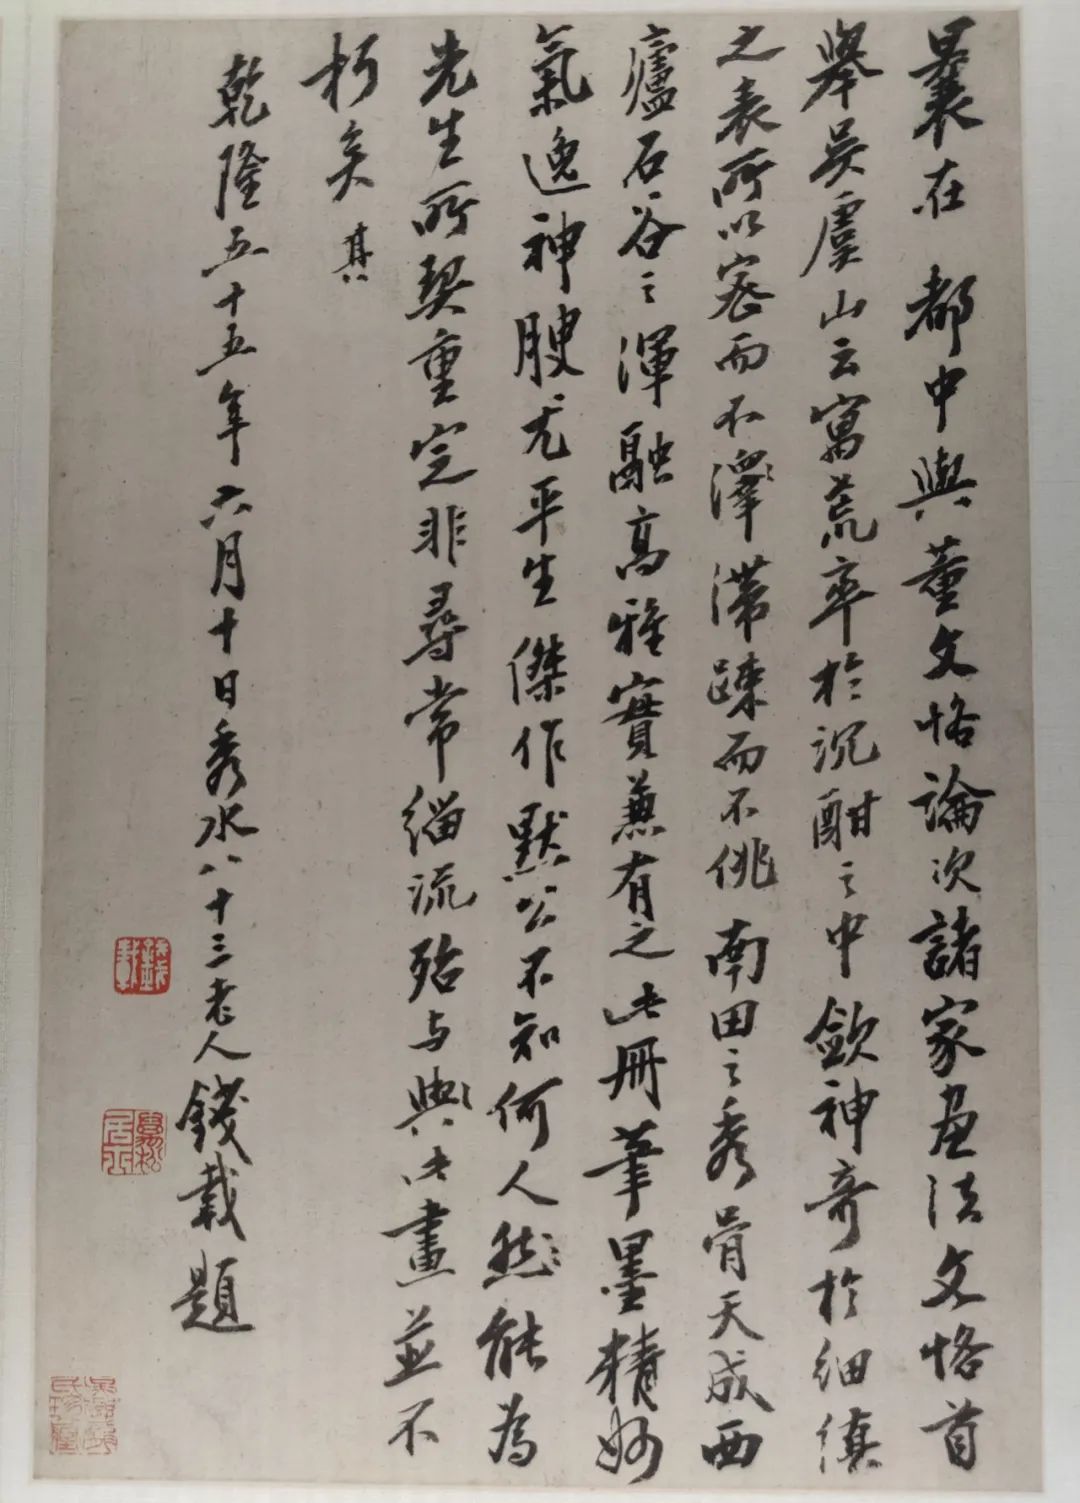 曩在都中與董文恪論次諸家画法文恪首
舉吳虞山云寓荒率於沉酣之中歛神奇於細縝
之表所以密而不澤滯踈而不佻南田之秀骨天成西
廬石谷之渾融高雅實兼有之此冊筆墨精妙
氣逸神腴尤平生傑作默公不知何人然能為
先生所契重定非尋常緇流殆与與此畫並不
朽矣 其
乾隆五十五年六月十日秀水八十三老人錢載題